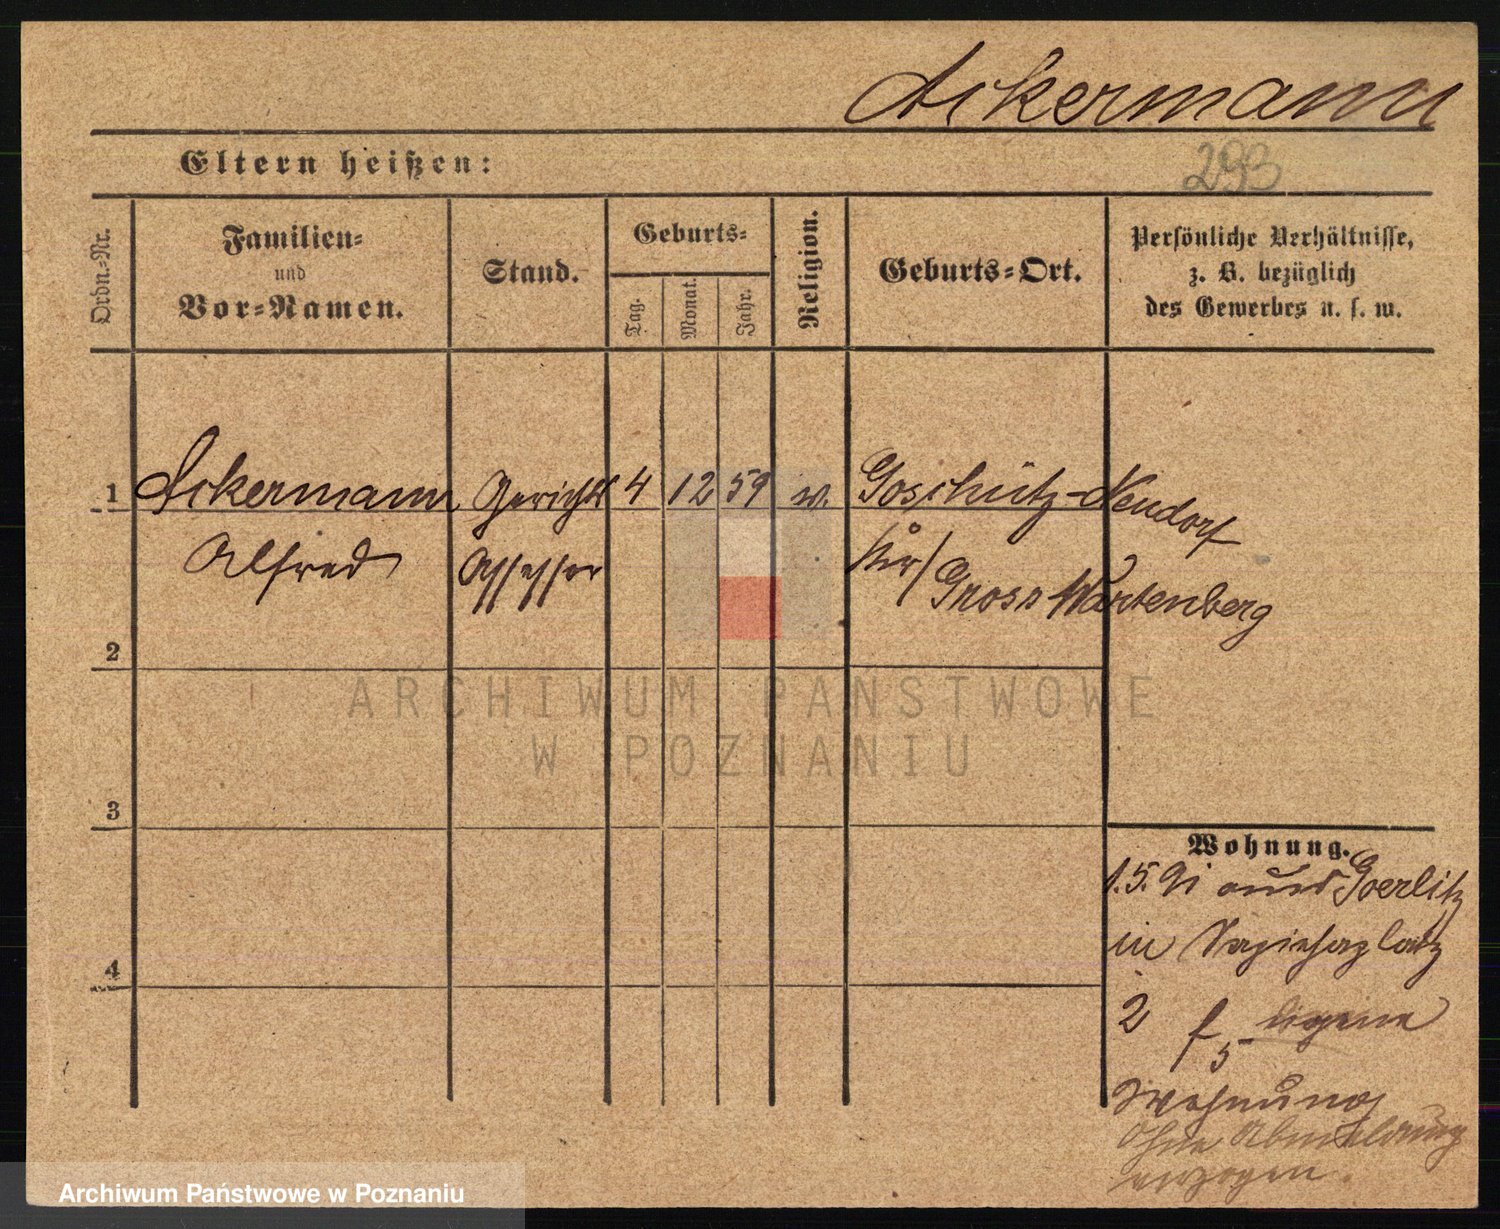 Ackermann
Eltern heißen:
293
Ordn.-Nr.
Familien-
und
Vor-Namen.
Stand.
Geburts-
Tag.
Monat.
Jahr.
Religion.
Geburts-Ort.
Persönliche Verhältnisse,
z. B. bezüglich
des Gewerbes u. s. w.
1 Ackermann Gerichts 4 12 59 ev. Goschütz-Neudorf
Alfred Assessor Kr/ Gross Wartenberg
2
3
4
ARCHIWUM PAŃSTWOWE
W POZNANIU
Wohnung.
1.5.91 aus Goerlitz
in Sapiehaplatz
2 f eigene
5
Wohnung
Ohne Abmeldung
verzogen.
Archiwum Państwowe w Poznaniu